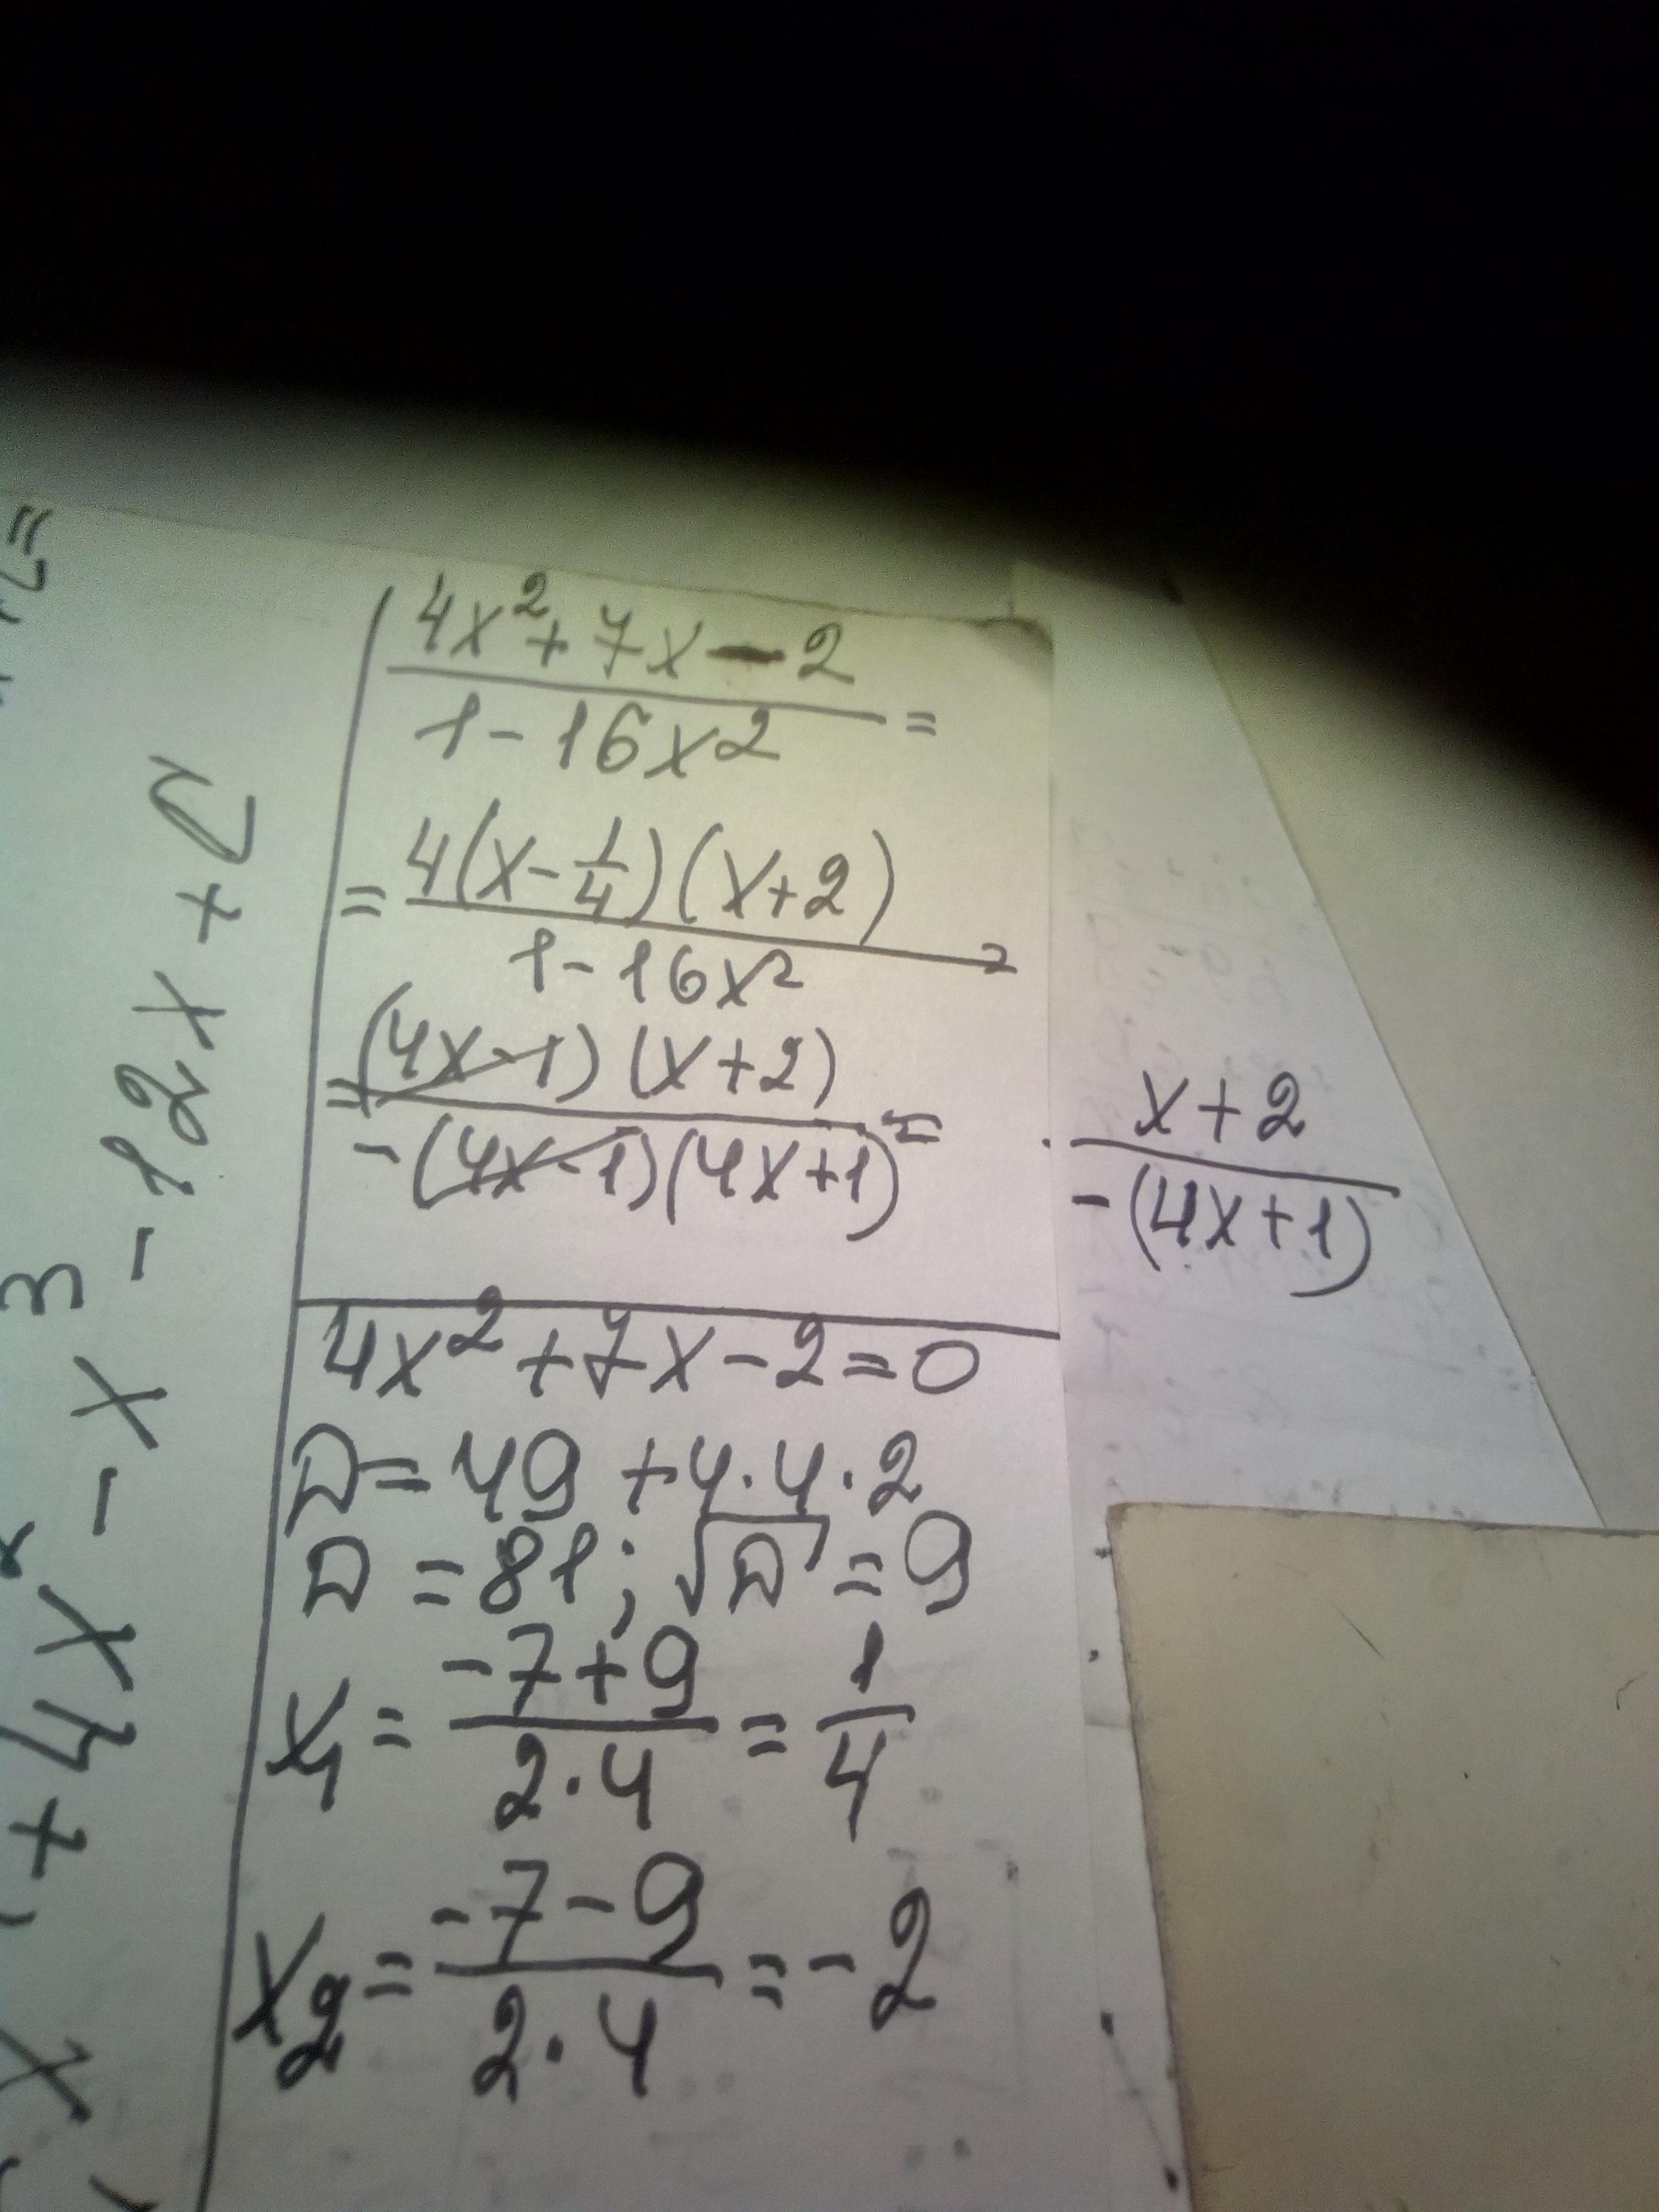 4x²+7x-2
1-16x2 =
= 4(x-1/4)(x+2)
1-16x²
=(4x-1)(x+2)
-(4x-1)(4x+1) =
x+2
-(4x+1)
4x²+7x-2=0
D=49+4·4·2
D=81; √D=9
x1 = -7+9 / 2·4 = 1/4
x2 = -7-9 / 2·4 = -2
+4x² - x³ - 12x +